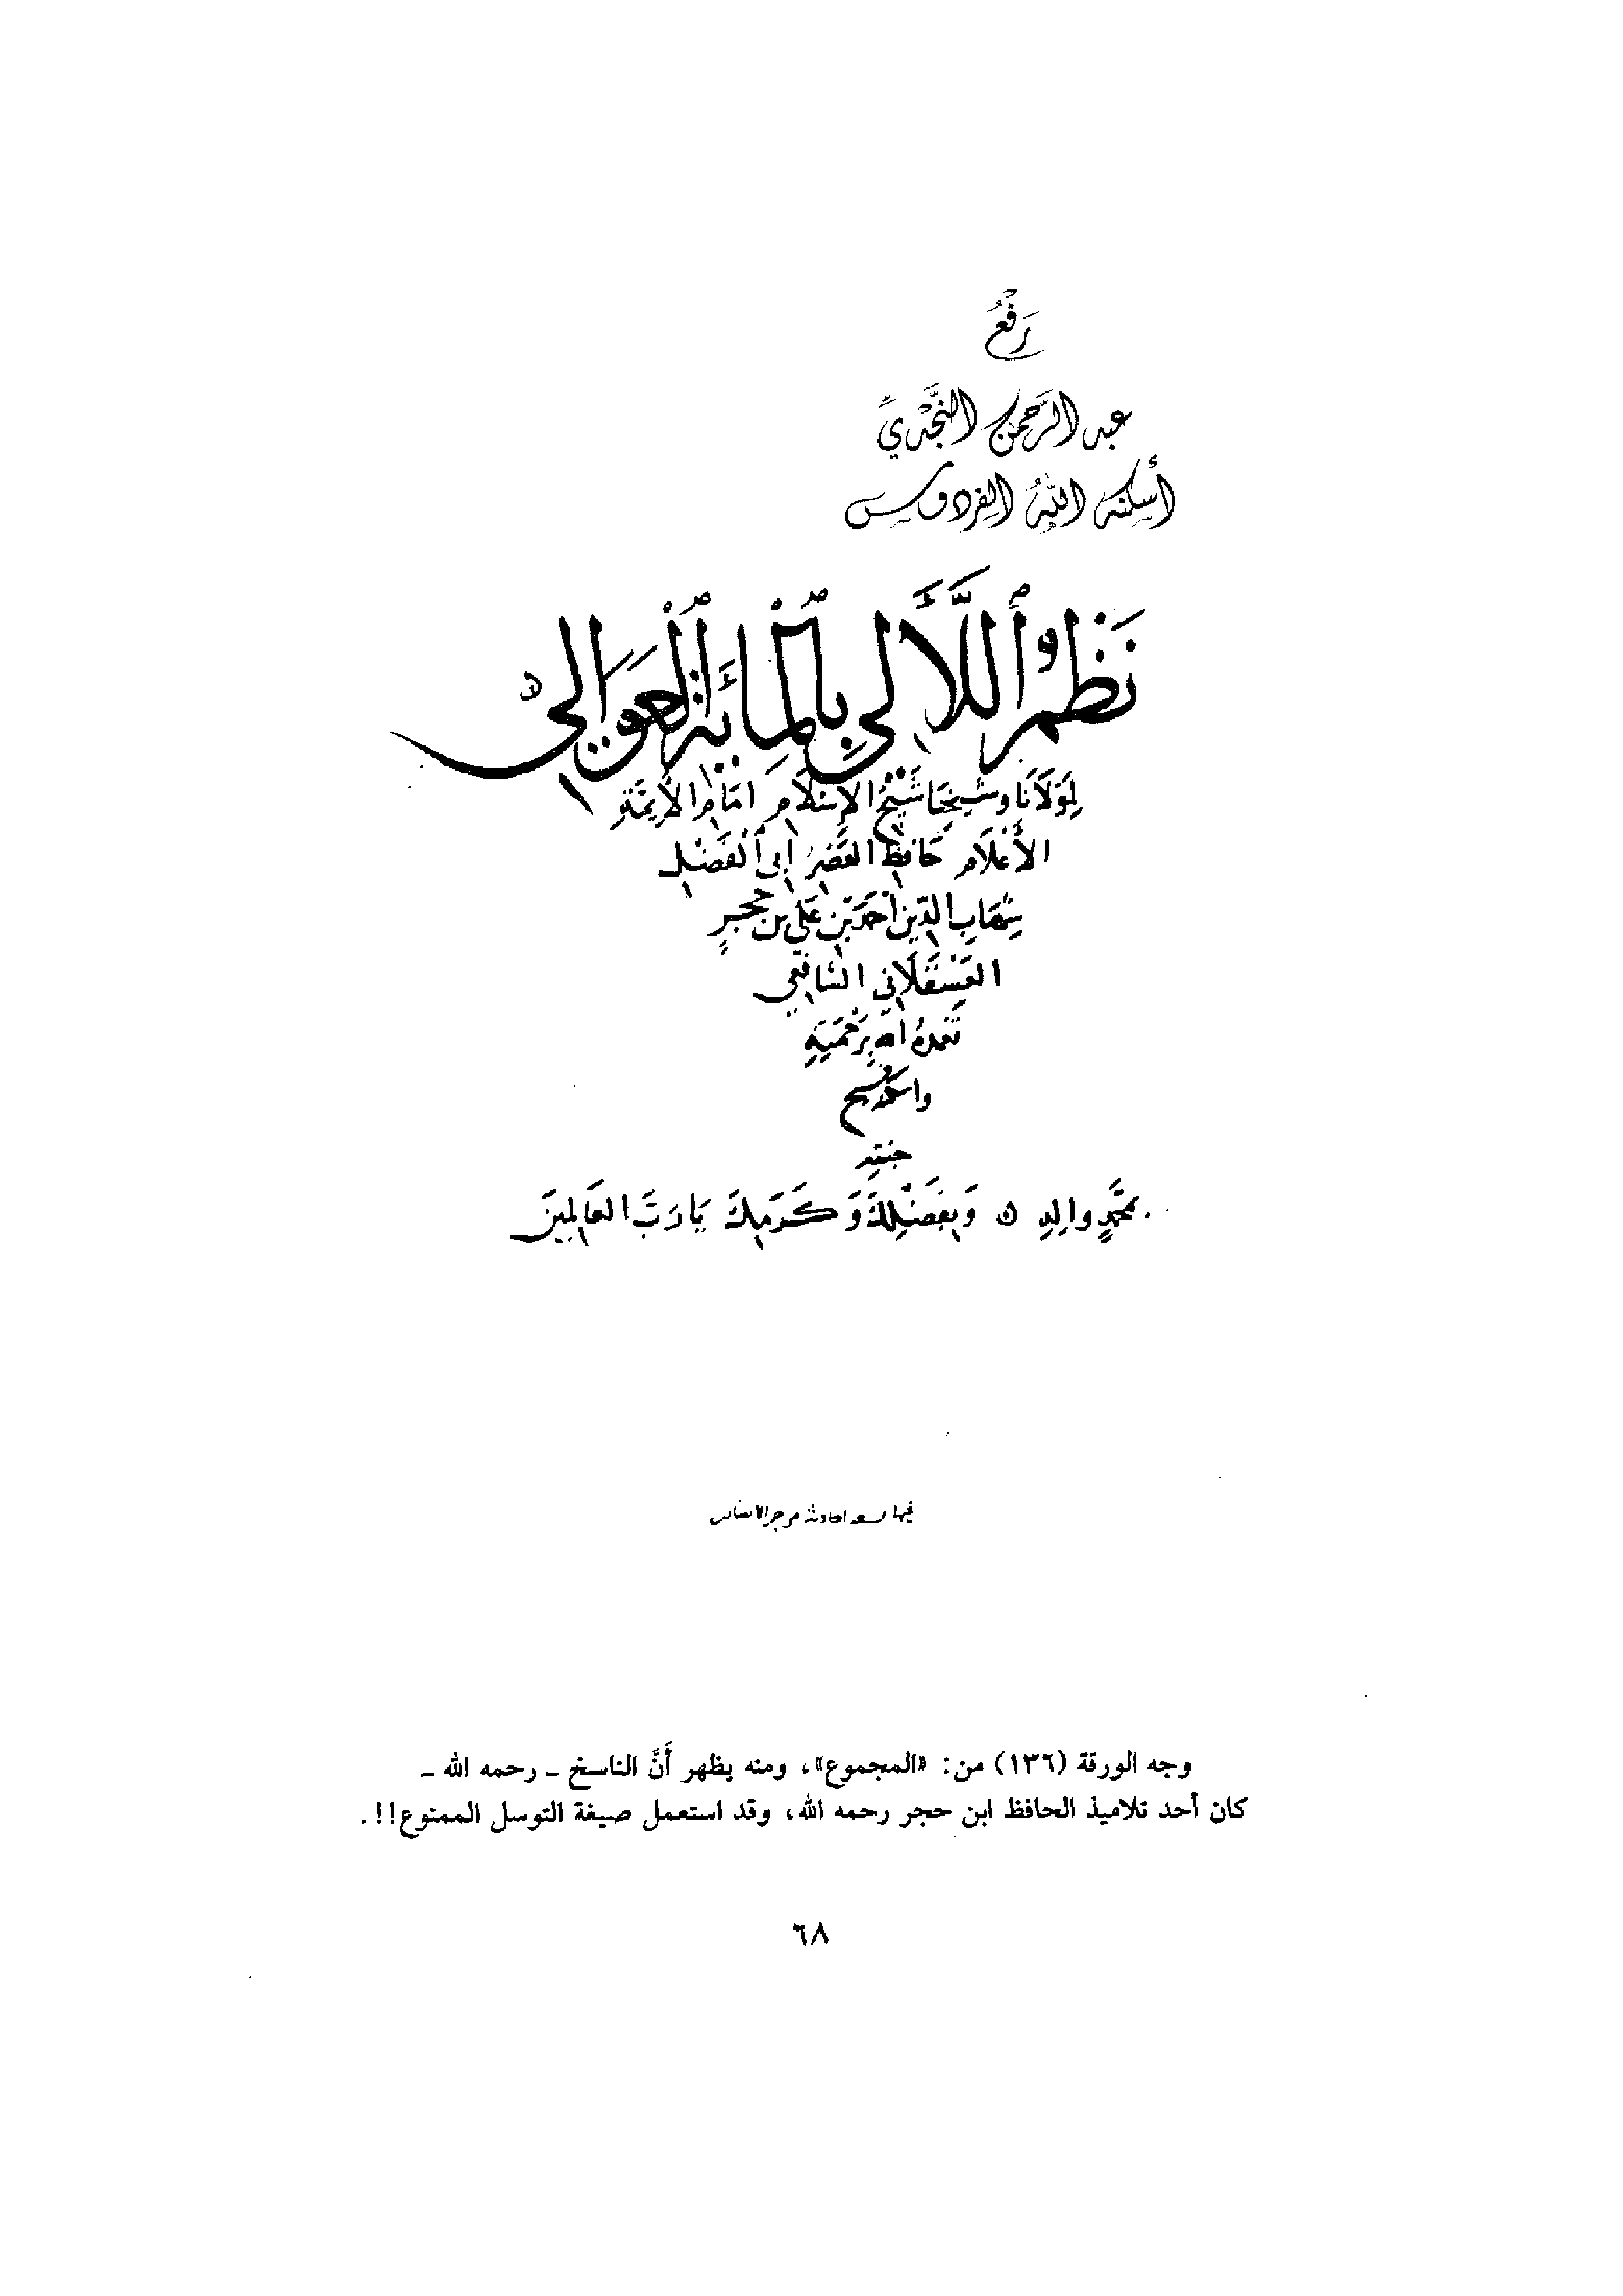 رَفْعُ
عبد الرَّحمن النَّجْديِّ
أسكنه اللهُ الفردوس
نَظْمُ ٱللَّآلِي بِٱلْمِائَةِ ٱلْعَوَالِي
لِمَوْلَانَا وَشَيْخِنَا شَيْخِ الإِسْلَامِ امَامِ الأَئِمَّةِ
الأَعْلَامِ حَافِظِ العَصْرِ أبي الفَضْلِ
شِهَابِ الدِّينِ أَحْمَدَ بْنِ عَلي بن حَجَرٍ
العَسْقَلَانِي الشافِعِي
تَغَمدَهُ الله بِرَحْمَتِهِ
واسكنه فسيح
جنته
بمُحَمَّدٍ والِهِ ن وَبِفَضْلِكَ وَكَرَمِكَ يَا رَبَّ العَالَمِينَ
فيها
وجه الورقة (١٣٦) من: «المجموع»، ومنه يظهر أَنَّ الناسخ - رحمه الله -
كان أحد تلاميذ الحافظ ابن حجر رحمه الله، وقد استعمل صيغة التوسل الممنوع!!.
٦٨